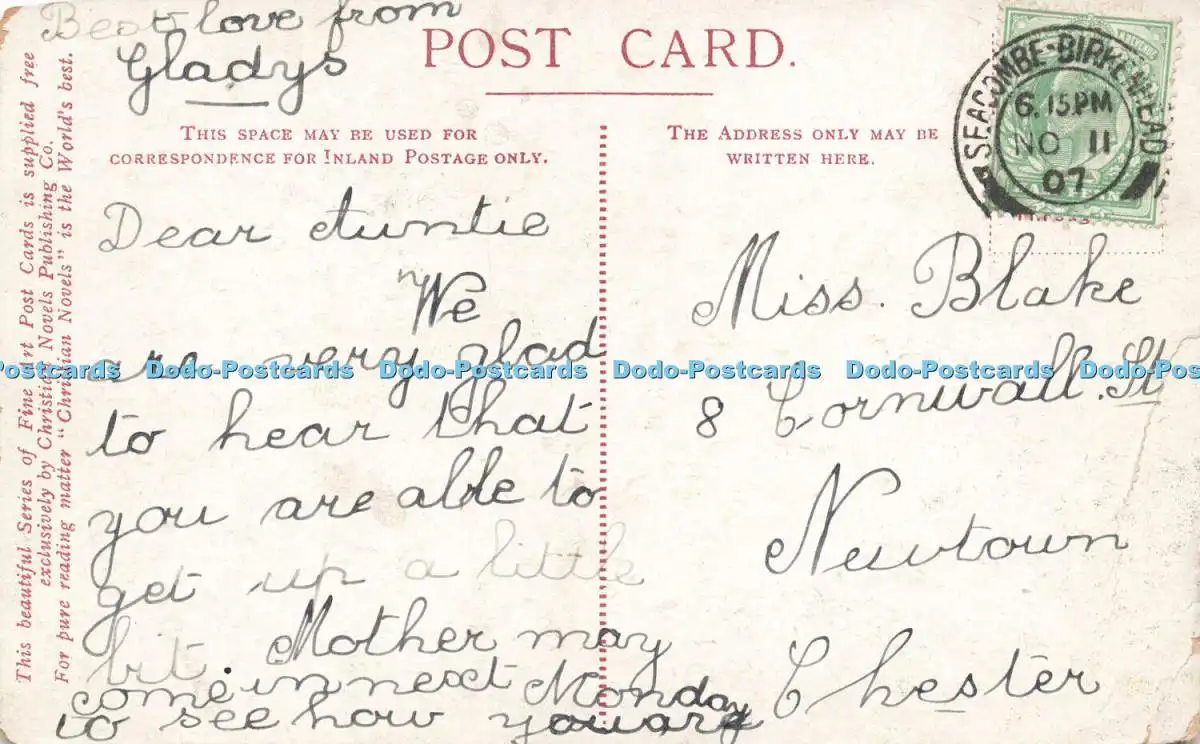 Best love from
Gladys
POST CARD.
THIS SPACE MAY BE USED FOR
CORRESPONDENCE FOR INLAND POSTAGE ONLY.
THE ADDRESS ONLY MAY BE
WRITTEN HERE.
This beautiful Series of Fine Art Post Cards is supplied free
exclusively by Christian Novels Publishing Co.
For pure reading matter "Christian Novels" is the World's best.
SEACOMBE-BIRKENHEAD
6.15PM
NO 11
07
Dear Auntie
We
are very glad
to hear that
you are able to
get up a little
bit. Mother may
come in next Monday
to see how you are
Miss. Blake
8 Cornwall. St
Newtown
Chester
Dodo-Postcards Dodo-Postcards Dodo-Postcards Dodo-Postcards Dodo-Postcards